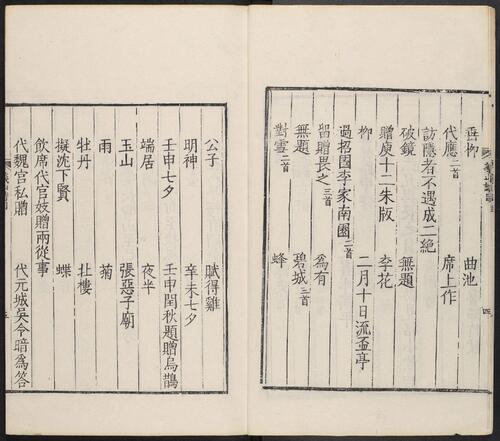 垂柳 曲池
代應二首 席上作
訪隱者不遇成二絶
破鏡 無題
贈庾十二朱版 李花
柳 二月十日流盃亭
過招國李家南園二首
留贈畏之三首 爲有
無題 碧城三首
對雪二首 蜂
四
公子 賦得雞
明神 辛未七夕
壬申七夕 壬申閏秋題贈烏鵲
端居 夜半
玉山 張惡子廟
雨 菊
牡丹 北樓
擬沈下賢 蝶
飲席代官妓贈兩從事
代魏宮私贈 代元城吳令暗爲答
五